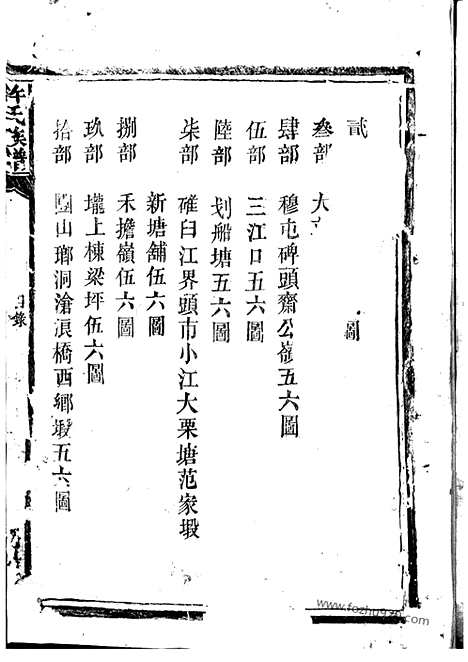 貳 圖
叁部 大
肆部 穆屯碑頭齋公嶺五六圖
伍部 三江口五六圖
陸部 划船塘五六圖
柒部 碓臼江界頭市小江大栗塘范家塅
新塘舖伍六圖
捌部 禾擔嶺伍六圖
玖部 壠上棟梁坪伍六圖
拾部 團山瑯洞滄浪橋西鄉塅五六圖
許氏族譜
目錄
www.fozhu920.com